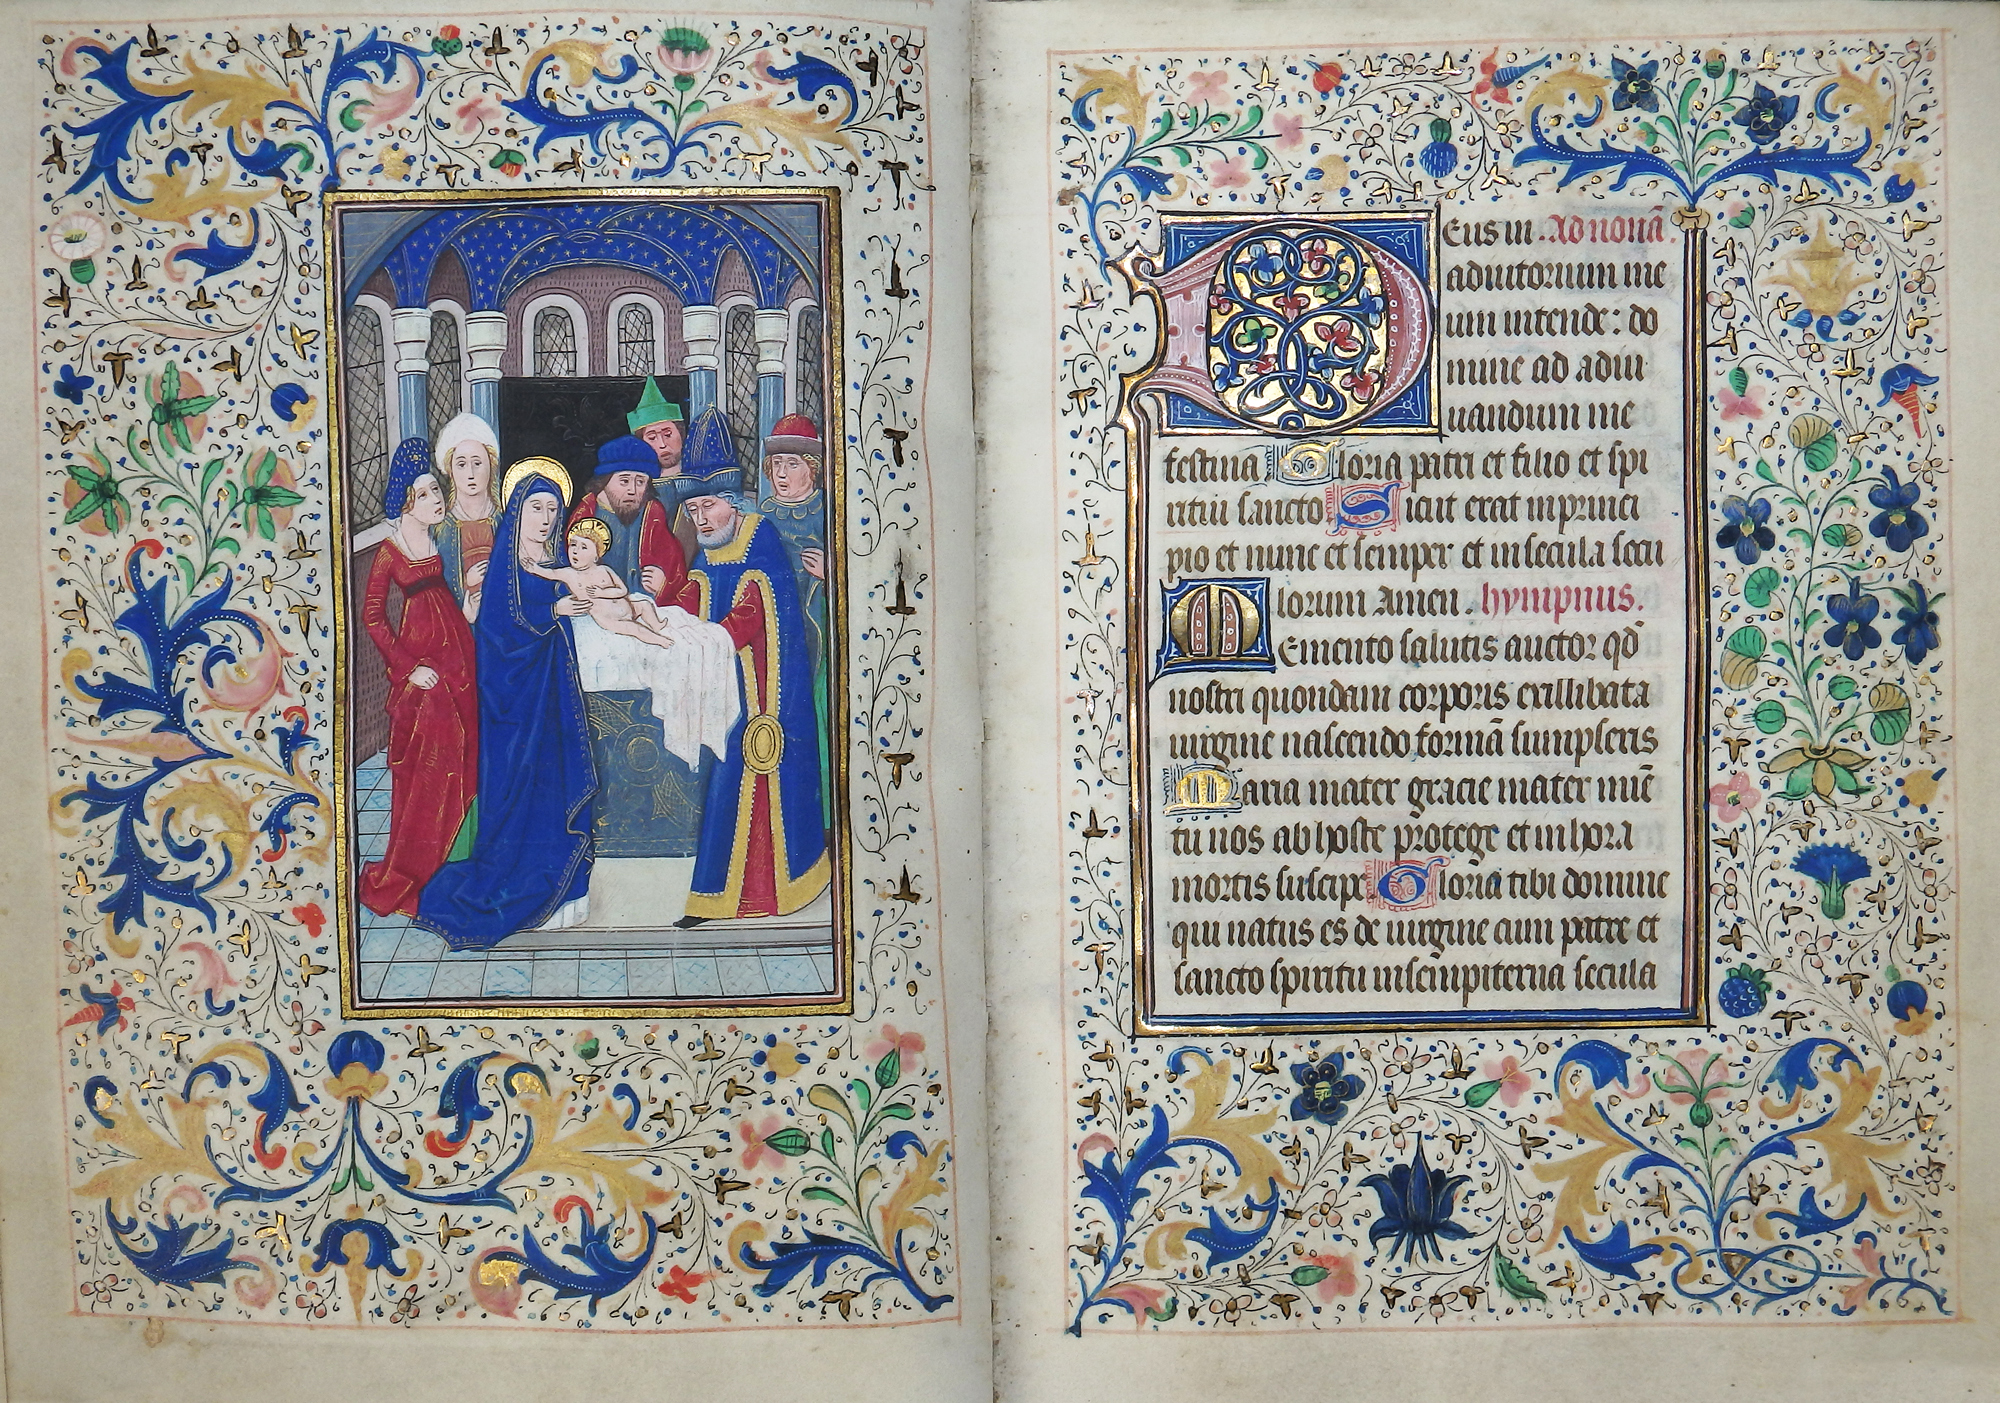 Deus in Ad nonā.
adiutorium me
um intende: do
mine ad adiu
uandum me
festina Gloria patri et filio et spi
ritui sancto Sicut erat in princi
pio et nunc et semper et in secula secu
lorum Amen. hympnus.
Memento salutis auctor qd̄
nostri quondam corporis ex illibata
uirgine nascendo formā sumpseris
Maria mater gracie mater mie
tu nos ab hoste protege et in hora
mortis suscipe Gloria tibi domine
qui natus es de uirgine cum patre et
sancto spiritu in sempiterna secula